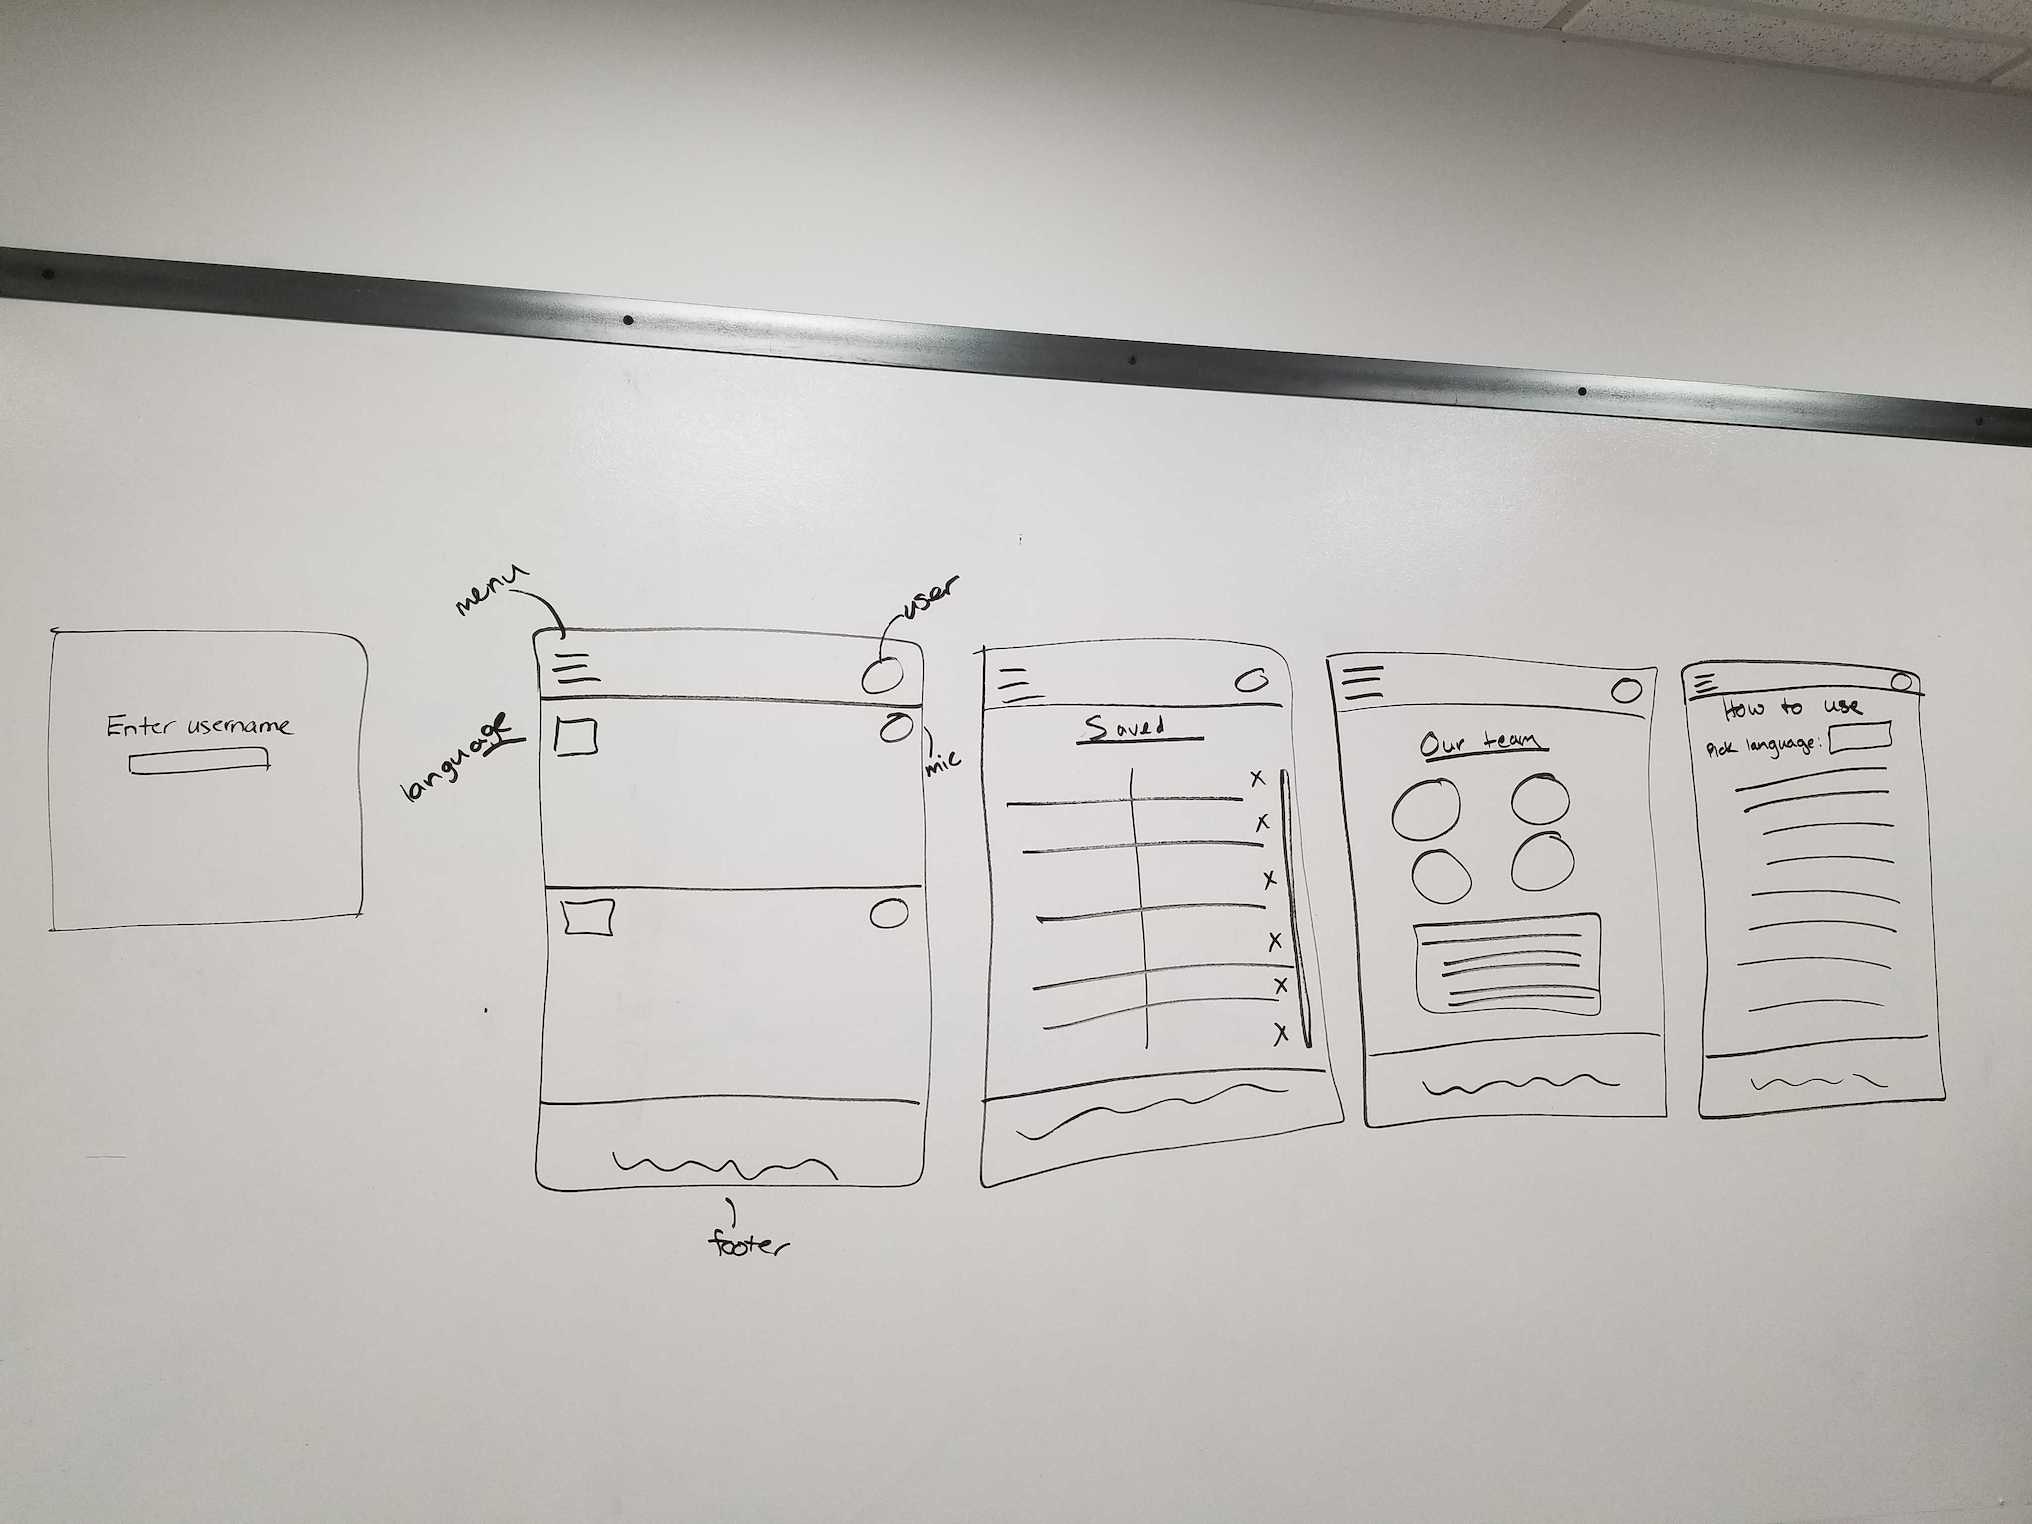 Enter username
menu
user
language
mic
footer
Saved
x
x
x
x
x
x
Our team
How to use
Pick language: